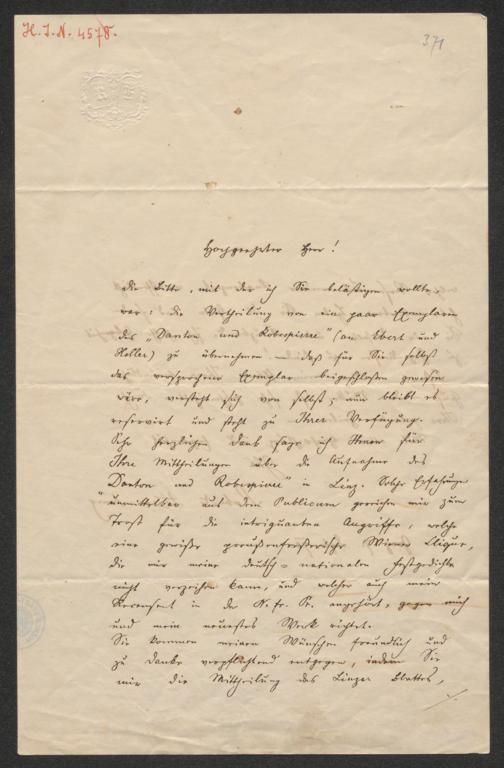 H. I. N. 4578.
371
Hochgeehrter Herr!
die Bitte, mit der ich Sie belästigen wollte,
war: die Vertheilung von ein paar Exemplaren
des „Danton und Robespierre" (an und
) zu übernehmen — daß für Sie selbst
das versprochene Exemplar beigeschlossen gewesen
wäre, versteht sich von selbst; nun bleibt es
reservirt und steht zu Ihrer Verfügung.
Sehr herzlichen Dank sage ich Ihnen für
Ihre Mittheilungen über die Aufnahme des
Danton und Robespierre" in Linz. Solche Erfahrungen
unmittelbar aus dem Publicum gereichen mir zum
Trost für die intriguanten Angriffe, welche
eine gewisse preußenfresserische Wiener Clique,
die mir meine deutsch-nationalen Festgedichte
nicht verzeihen kann, und welcher auch mein
Recensent in der N. fr. Pr. angehört, gegen mich
und mein neuestes Werk richtet.
Sie kommen meinen Wünschen freundlich und
zu Danke verpflichtend entgegen, indem Sie
mir die Mittheilung des Linzer Blattes,
./.